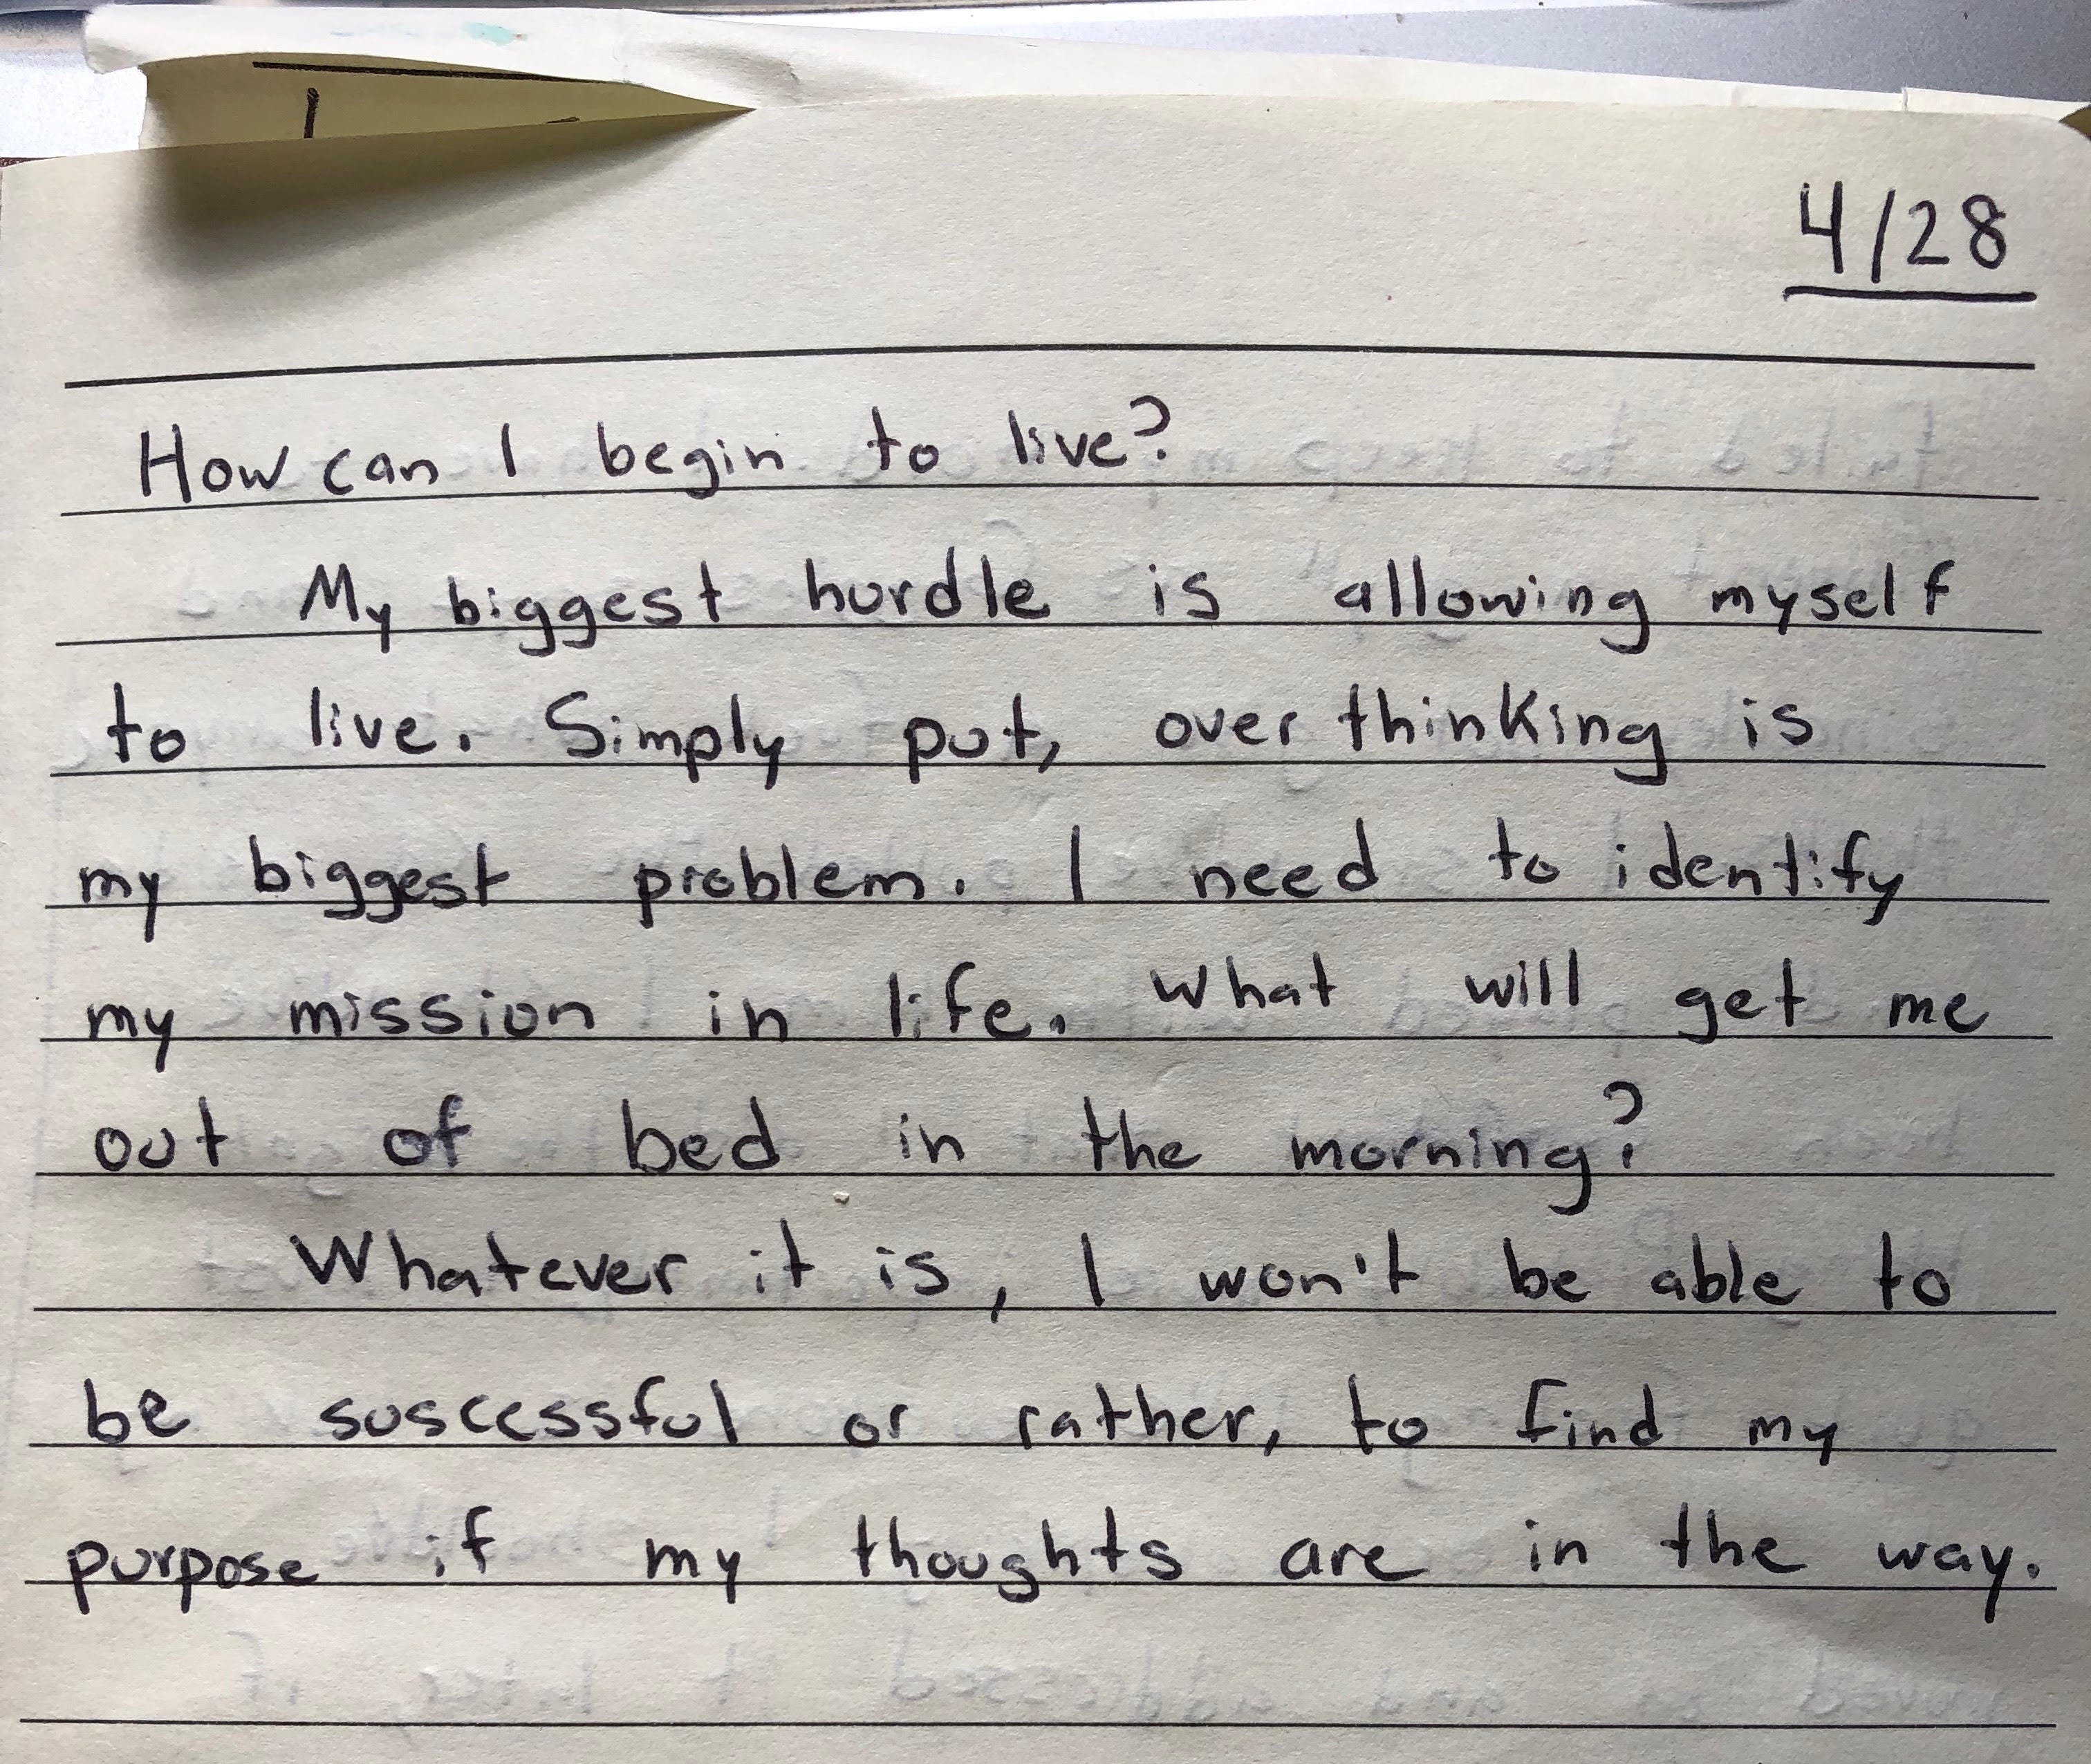 4/28
How can I begin to live?
My biggest hurdle is allowing myself
to live. Simply put, over thinking is
my biggest problem. I need to identify
my mission in life. What will get me
out of bed in the morning?
Whatever it is, I won't be able to
be suscessful or rather, to find my
purpose if my thoughts are in the way.